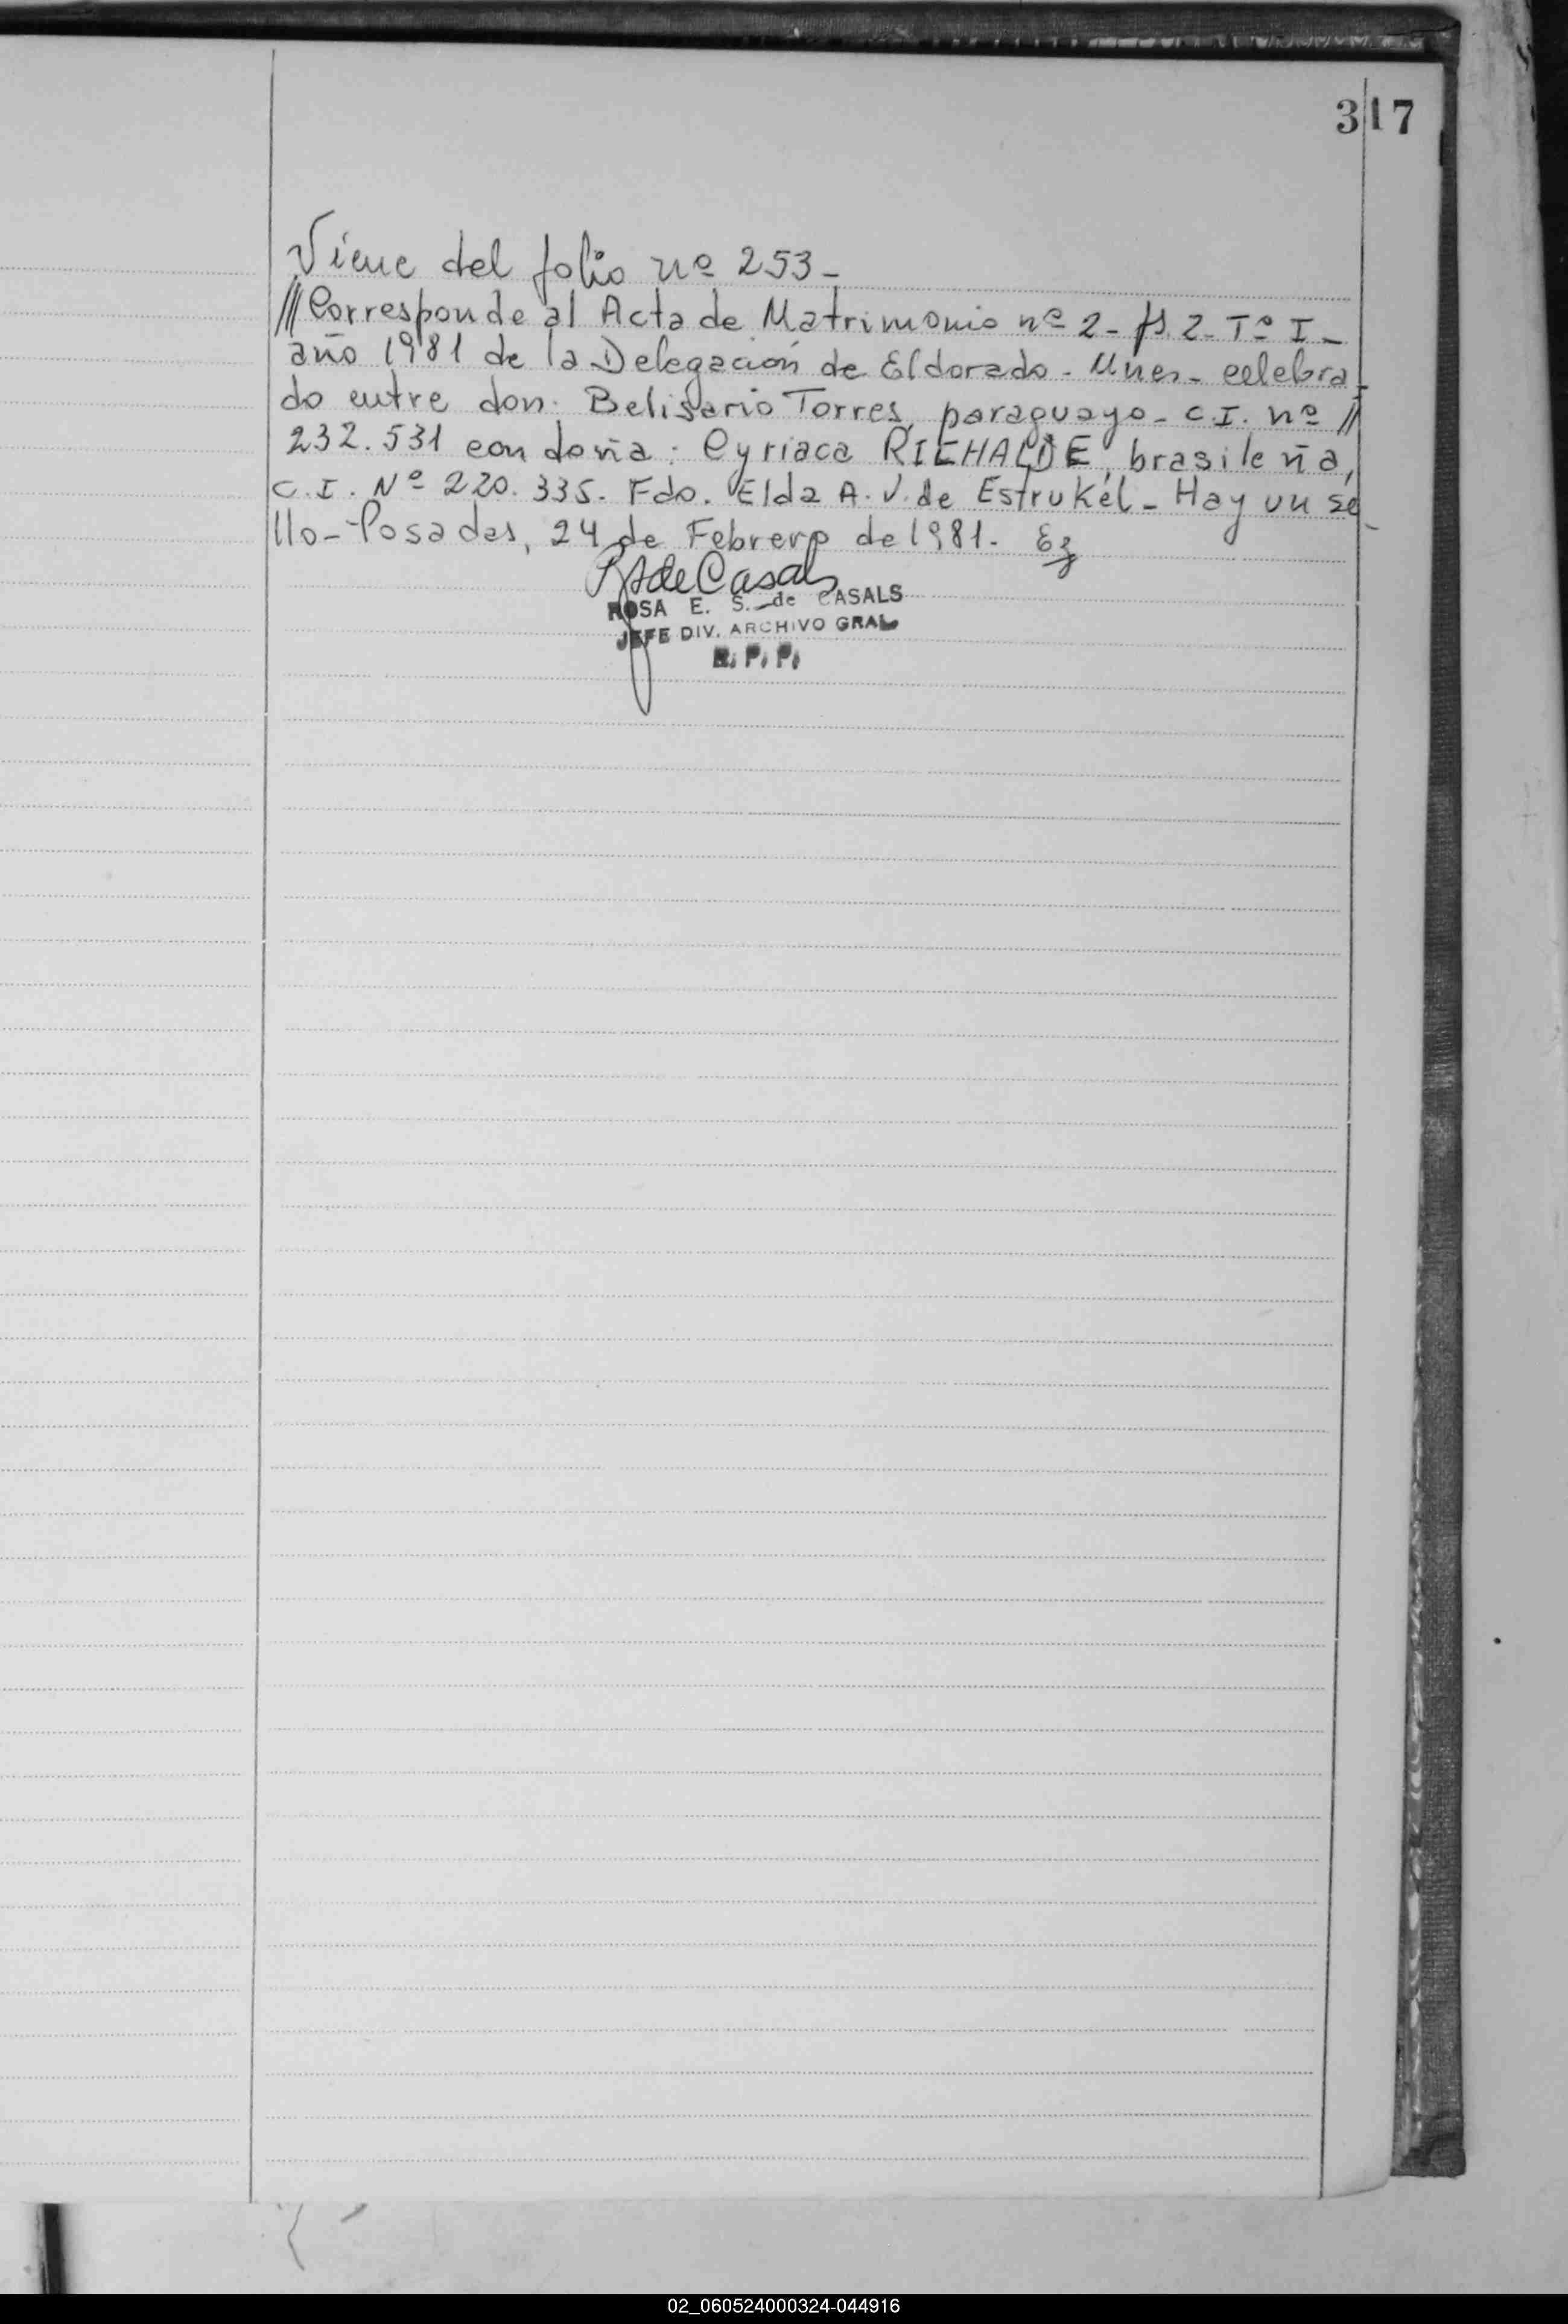 317
Viene del folio nº 253-
///Corresponde al Acta de Matrimonio nº 2- fs. 2- Tº I-
año 1981 de la Delegación de Eldorado- Mnes- celebra-
do entre don: Belisario Torres, paraguayo- C.I. nº //
232.531 con doña: Cyriaca RIEHALDE, brasileña,
C.I. Nº 220.335. Fdo. Elda A. V. de Estrukél- Hay un se-
llo- Posadas, 24 de Febrero de 1981.
RSdeCasals
ROSA E. S. de CASALS
JEFE DIV. ARCHIVO GRAL
R. P. P.
02_060524000324-044916